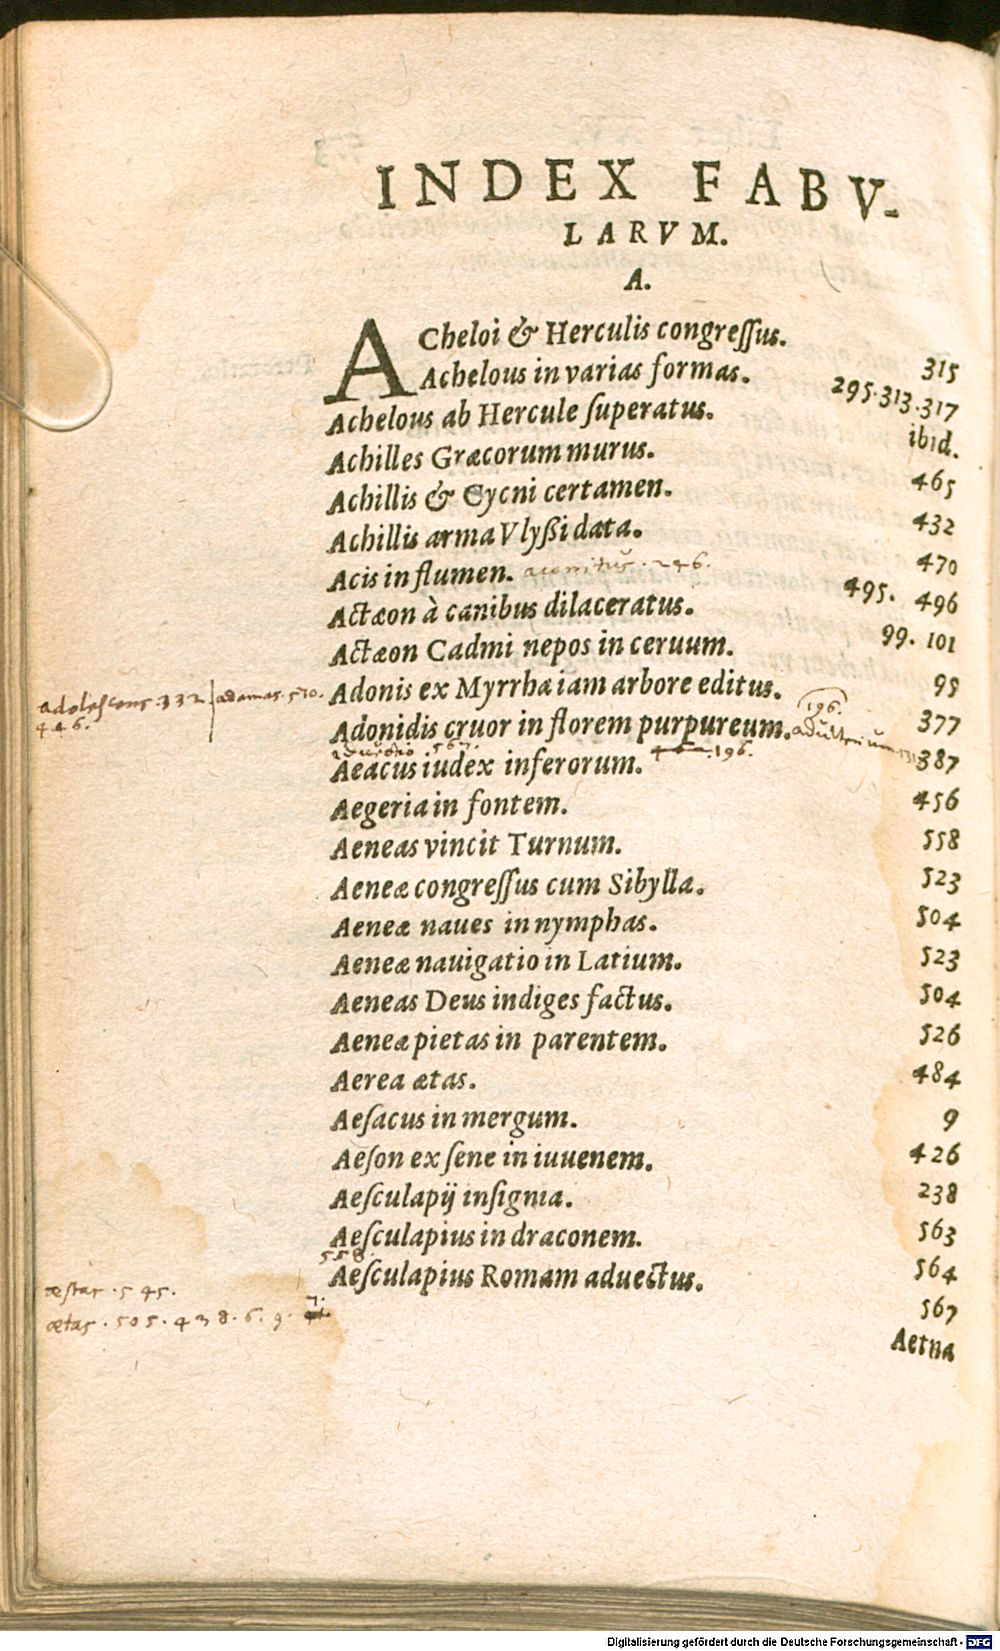 INDEX FABV-
LARVM.
A.
ACheloi & Herculis congreſſus. 315
Achelous in varias formas. 295.313.317
Achelous ab Hercule ſuperatus. ibid.
Achilles Græcorum murus. 465
Achillis & Cycni certamen. 432
Achillis arma Vlyßi data. 470
Acis in flumen. aconitũ. 246. 495. 496
Actæon à canibus dilaceratus. 99. 101
Actæon Cadmi nepos in ceruum. 95
adolescens. 332 | adamas. 570.
446.
Adonis ex Myrrha iam arbore editus. 377
196.
Adonidis cruor in florem purpureum. adulterium 387
567. 196.
Aeacus iudex inferorum. 456
Aegeria in fontem. 558
Aeneas vincit Turnum. 523
Aeneæ congreſſus cum Sibylla. 504
Aeneæ naues in nymphas. 523
Aeneæ nauigatio in Latium. 504
Aeneas Deus indiges factus. 526
Aeneæ pietas in parentem. 484
Aerea ætas. 9
Aeſacus in mergum. 426
Aeſon ex ſene in iuuenem. 238
Aeſculapij inſignia. 563
Aeſculapius in draconem. 564
558.
Aeſculapius Romam aduectus. 567
æstas. 545.
ætas. 505. 438. 6. 9. 7.
Aetna
Digitalisierung gefördert durch die Deutsche Forschungsgemeinschaft - DFG